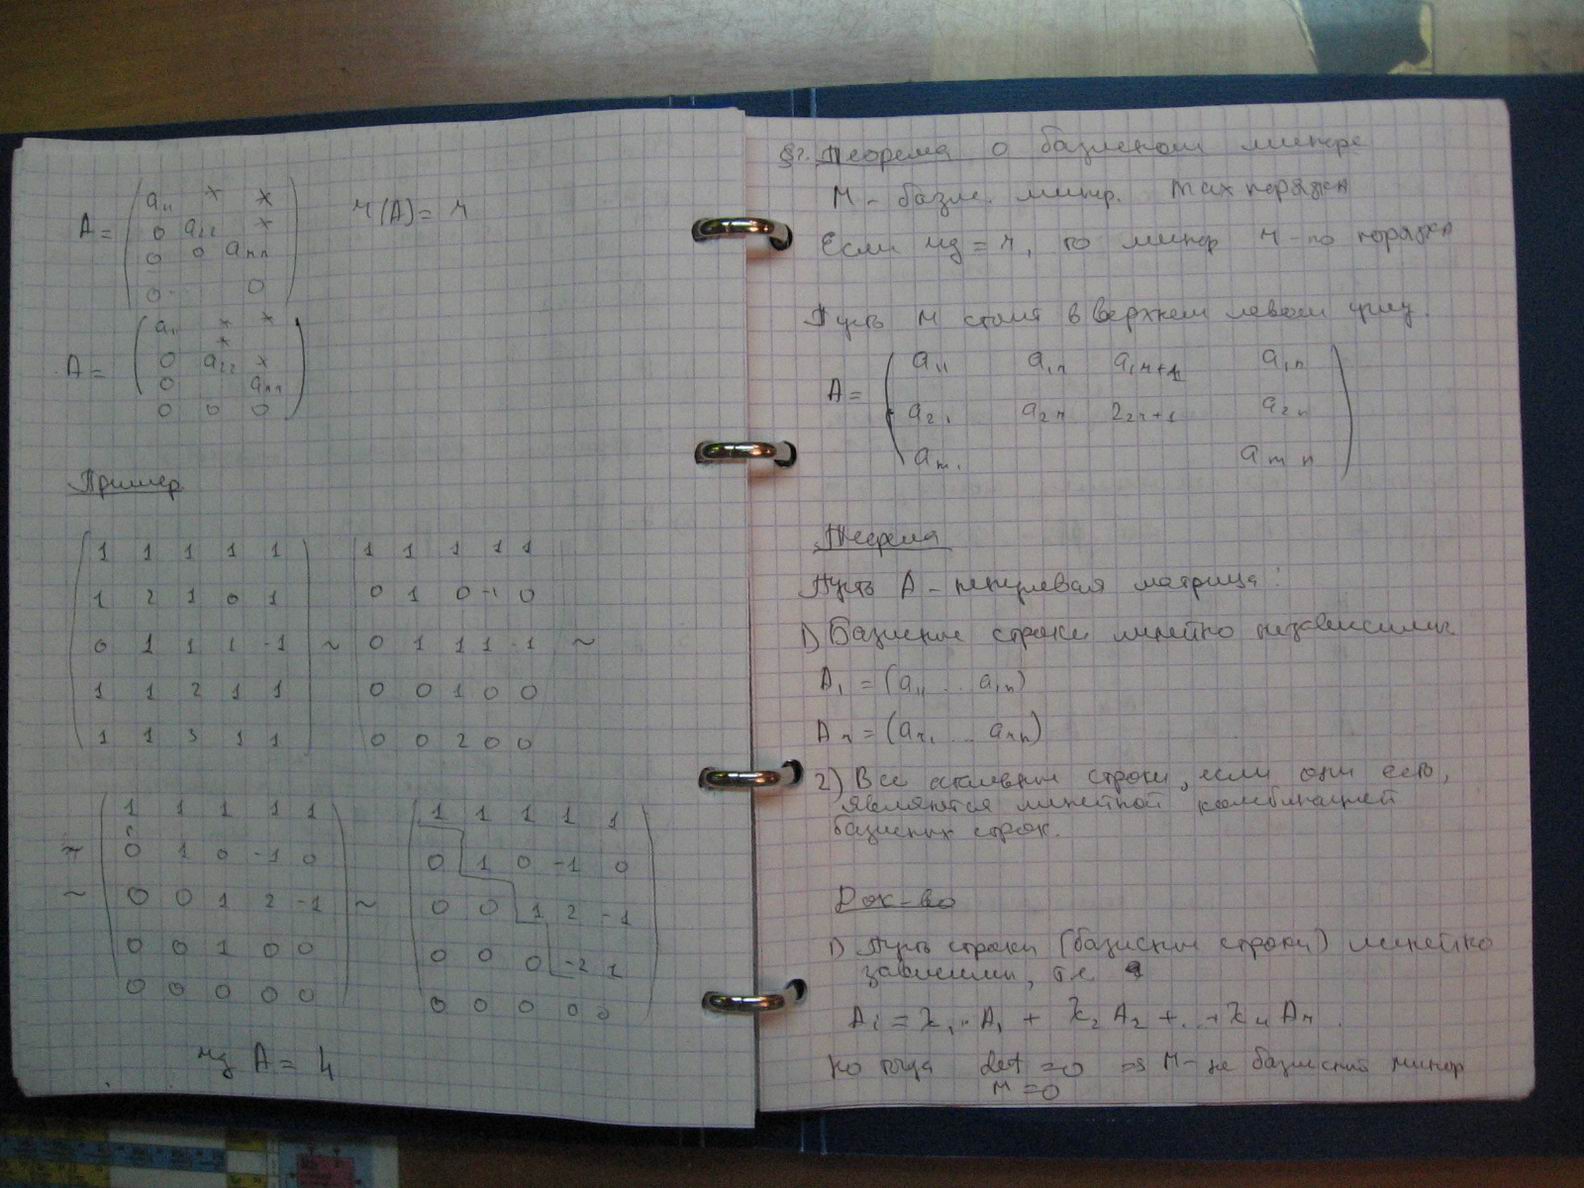 A = ( a₁₁ * *
0 a₂₂ * r(A) = r
0 0 aᵣᵣ
0 0 )
A = ( a₁₁ * *
*
0 a₂₂ *
0 aᵣᵣ
0 0 0 )
Пример
( 1 1 1 1 1 ) ( 1 1 1 1 1
1 2 1 0 1 0 1 0 -1 0
0 1 1 1 -1 ~ 0 1 1 1 -1 ~
1 1 2 1 1 0 0 1 0 0
1 1 3 1 1 0 0 2 0 0
( 1 1 1 1 1 ) ( 1 1 1 1 1 )
~ 0 1 0 -1 0 0 1 0 -1 0
~ 0 0 1 2 -1 ~ 0 0 1 2 -1
0 0 1 0 0 0 0 0 -2 1
0 0 0 0 0 0 0 0 0 0
rg A = 4
§2. Теорема о базисном миноре
M - базис. минор. max порядка
Если rg = r, то минор r-го порядка
Пусть M стоит в верхнем левом углу.
A = ( a₁₁ a₁ᵣ a₁ᵣ₊₁ a₁ₙ
a₂₁ a₂ᵣ 2₂ᵣ₊₁ a₂ₙ
aₘ₁ aₘₙ )
Теорема
Пусть A - ненулевая матрица:
1) Базисные строки линейно независимы
A₁ = (a₁₁ .. a₁ₙ)
Aᵣ = (aᵣ₁ ... aᵣₙ)
2) Все остальные строки, если они есть,
являются линейной комбинацией
базисных строк.
Док-во
1) Пусть строки (базисные строки) линейно
зависимы, т.е
Aᵢ = λ₁·A₁ + λ₂ A₂ +..+ λᵣ Aᵣ.
но тогда det = 0 => M - не базисный минор
M = 0